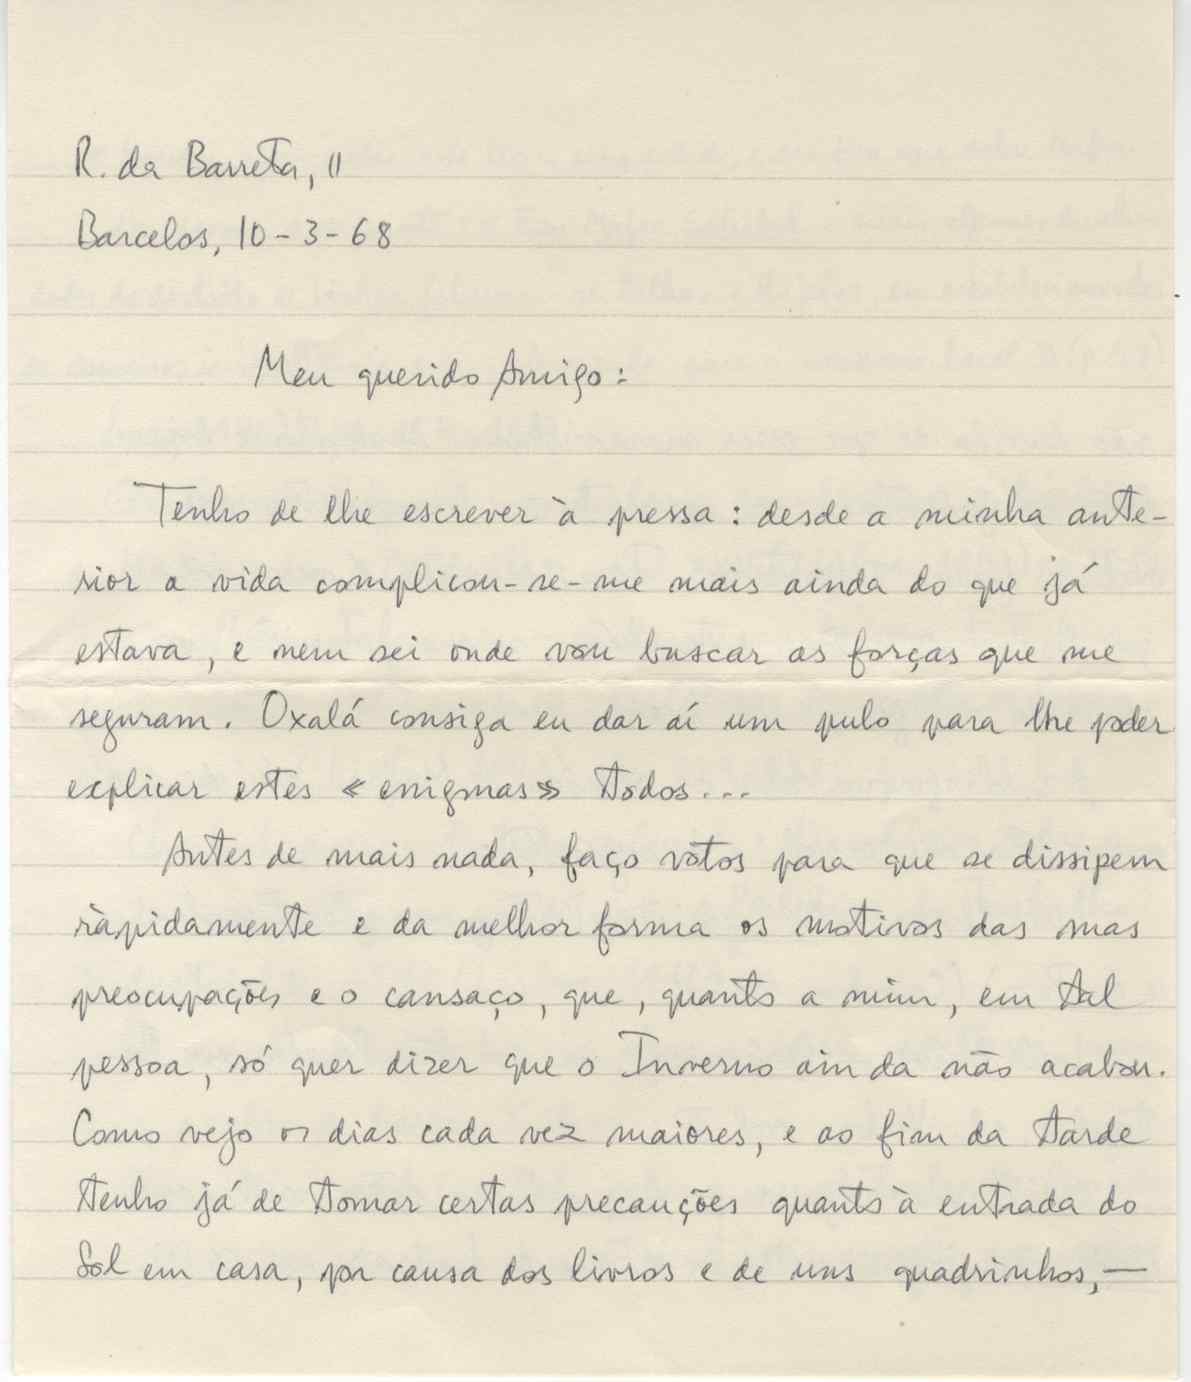 R. da Barreta, 11
Barcelos, 10-3-68
Meu querido Amigo:
Tenho de lhe escrever à pressa: desde a minha ante-
rior a vida complicou-se-me mais ainda do que já
estava, e nem sei onde vou buscar as forças que me
seguram. Oxalá consiga eu dar aí um pulo para lhe poder
explicar estes «enigmas» todos...
Antes de mais nada, faço votos para que se dissipem
ràpidamente e da melhor forma os motivos das suas
preocupações e o cansaço, que, quanto a mim, em tal
pessoa, só quer dizer que o Inverno ainda não acabou.
Como vejo os dias cada vez maiores, e ao fim da tarde
tenho já de tomar certas precauções quanto à entrada do
Sol em casa, por causa dos livros e de uns quadrinhos,—